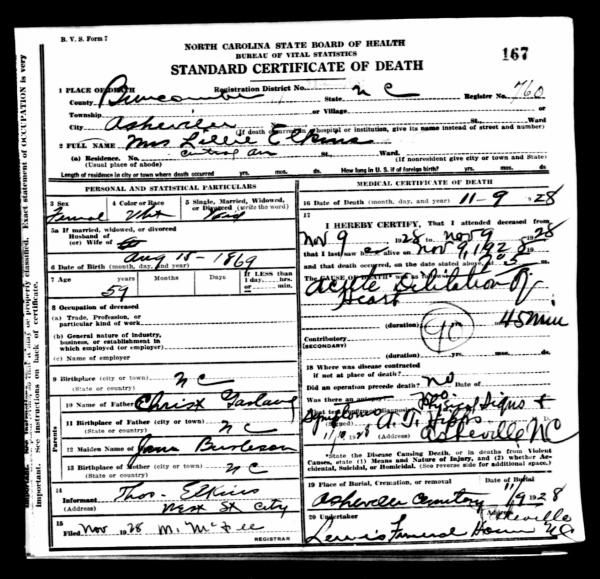 B. V. S. Form 7
NORTH CAROLINA STATE BOARD OF HEALTH
BUREAU OF VITAL STATISTICS
STANDARD CERTIFICATE OF DEATH
167
1 PLACE OF DEATH
Registration District No.
Register No. 760
County Buncombe State N C
Township or Village or
City Asheville St., Ward
(If death occurred in a hospital or institution, give its name instead of street and number)
2 FULL NAME Mrs Lillie Elkins
(a) Residence. No. St., Ward.
(Usual place of abode) (If nonresident give city or town and State)
Length of residence in city or town where death occurred yrs. mos. ds. How long in U. S. if of foreign birth? yrs. mos. ds.
PERSONAL AND STATISTICAL PARTICULARS
3 Sex
4 Color or Race
5 Single, Married, Widowed, or Divorced (write the word)
Femal Wht Wid
5a If married, widowed, or divorced
Husband of
(or) Wife of
6 Date of Birth (month, day, and year) Aug 15-1869
7 Age years Months Days If LESS than
59 1 day, hrs.
or min.
8 Occupation of deceased
(a) Trade, Profession, or
particular kind of work
(b) General nature of industry,
business, or establishment in
which employed (or employer)
(c) Name of employer
9 Birthplace (city or town) N C
(State or country)
Parents
10 Name of Father Christ
11 Birthplace of Father (city or town)
(State or country) N C
12 Maiden Name of Mother Jane Burleson
13 Birthplace of Mother (city or town) N C
(State or country)
14
Informant Thos. Elkins
(Address) West St City
15
Filed Nov 1928 M. McFee
REGISTRAR
MEDICAL CERTIFICATE OF DEATH
16 Date of Death (month, day, and year) 11-9 1928
17
I HEREBY CERTIFY, That I attended deceased from
Nov 9 1928 to Nov 9 1928
that I last saw h alive on Nov 9, 1928
and that death occurred, on the date stated above, at
The CAUSE OF DEATH* was as follows:
Acute Dilitation of
Heart
(duration) yrs. mos. 45 min
90
Contributory
(SECONDARY)
(duration) yrs. mos. ds.
18 Where was disease contracted
if not at place of death?
Did an operation precede death? no Date of
Was there an autopsy?
What test confirmed diagnosis? Physical Signs +
Symptoms
(Signed) A. T. Hipps
(Address) Asheville NC
*State the Disease Causing Death, or in deaths from Violent
Causes, state (1) Means and Nature of Injury, and (2) whether Ac-
cidental, Suicidal, or Homicidal. (See reverse side for additional space.)
19 Place of Burial, Cremation, or removal Date of Burial
Asheville Cemetery 11/9 1928
20 Undertaker Address Asheville
Lewis Funeral Home N.C.
Exact statement of OCCUPATION is very
important. See instructions on back of certificate.